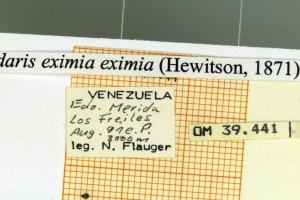 daris eximia eximia (Hewitson, 1871)
VENEZUELA
Edo. Merida
Los Freiles
Aug. 91 e.P.
3000m
leg. N. Flauger
OM 39.441